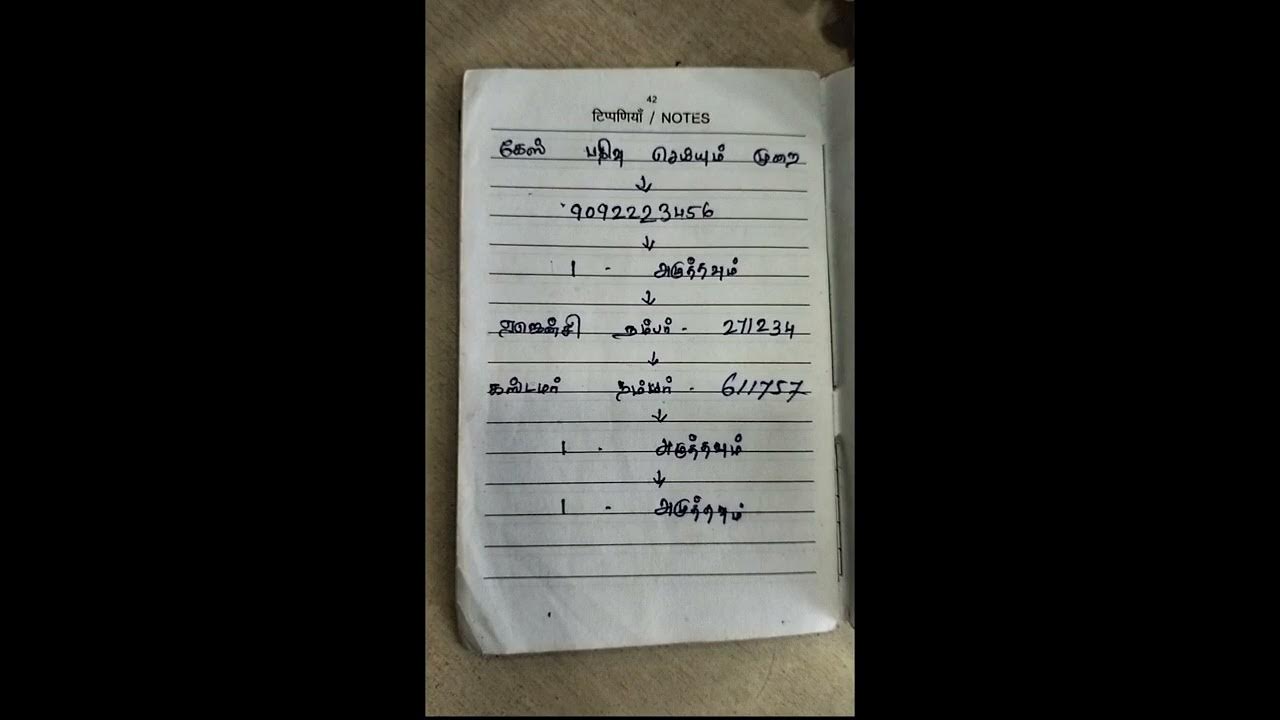 42
टिप्पणियाँ / NOTES
கேஸ் பதிவு செய்யும் முறை
↓
9092223456
↓
1 - அழுத்தவும்
↓
ஏஜென்சி நம்பர் - 271234
↓
கஸ்டமர் நம்பர் - 611757
↓
1 - அழுத்தவும்
↓
1 - அழுத்தவும்